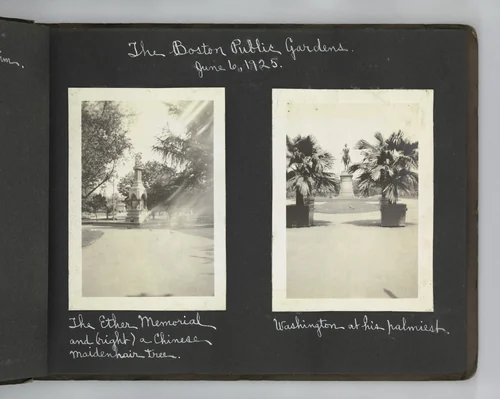 The Boston Public Gardens.
June 6, 1925.
The Ether Memorial
and (right) a Chinese
maidenhair tree.
Washington at his palmiest.